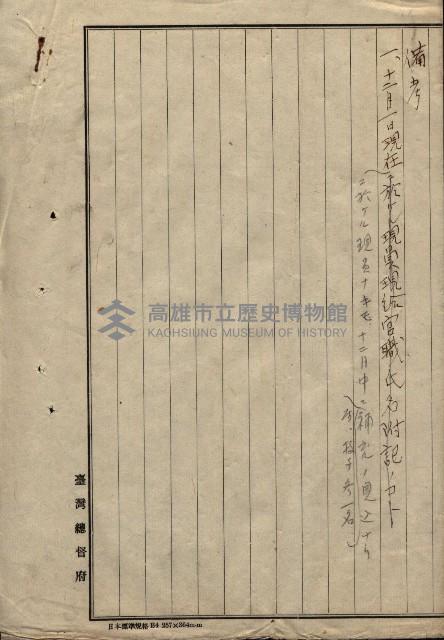 備考
一、十二月一日現在ニ於ケル現員現給官職氏名附記ノコト
ニ於ケル現員ナキモ十二月中ニ補充ノ見込ナリ
臺灣總督府
日本標準規格 B4 257×364m·m
高雄市立歷史博物館
KAOHSIUNG MUSEUM OF HISTORY